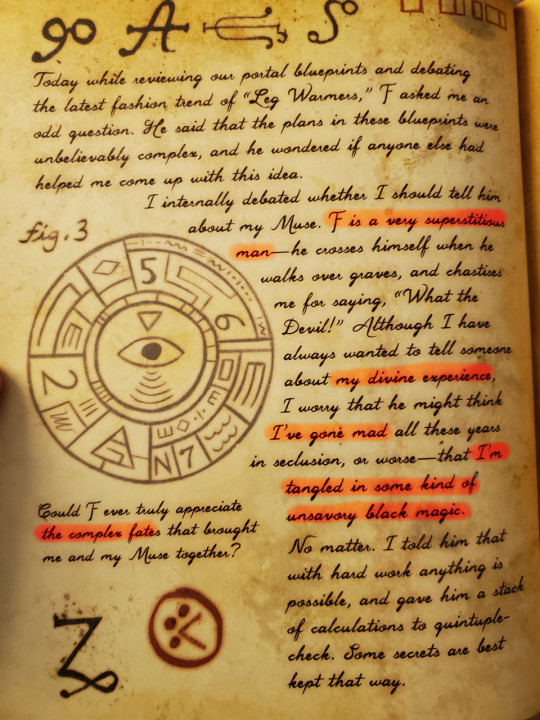 Today while reviewing our portal blueprints and debating
the latest fashion trend of "Leg Warmers," F asked me an
odd question. He said that the plans in these blueprints were
unbelievably complex, and he wondered if anyone else had
helped me come up with this idea.
I internally debated whether I should tell him
about my Muse. F is a very superstitious
man—he crosses himself when he
walks over graves, and chastises
me for saying, "What the
Devil!" Although I have
always wanted to tell someone
about my divine experience,
I worry that he might think
I've gone mad all these years
in seclusion, or worse—that I'm
tangled in some kind of
unsavory black magic.
No matter. I told him that
with hard work anything is
possible, and gave him a stack
of calculations to quintuple-
check. Some secrets are best
kept that way.
fig. 3
5
6
2
N
7
Could F ever truly appreciate
the complex fates that brought
me and my Muse together?